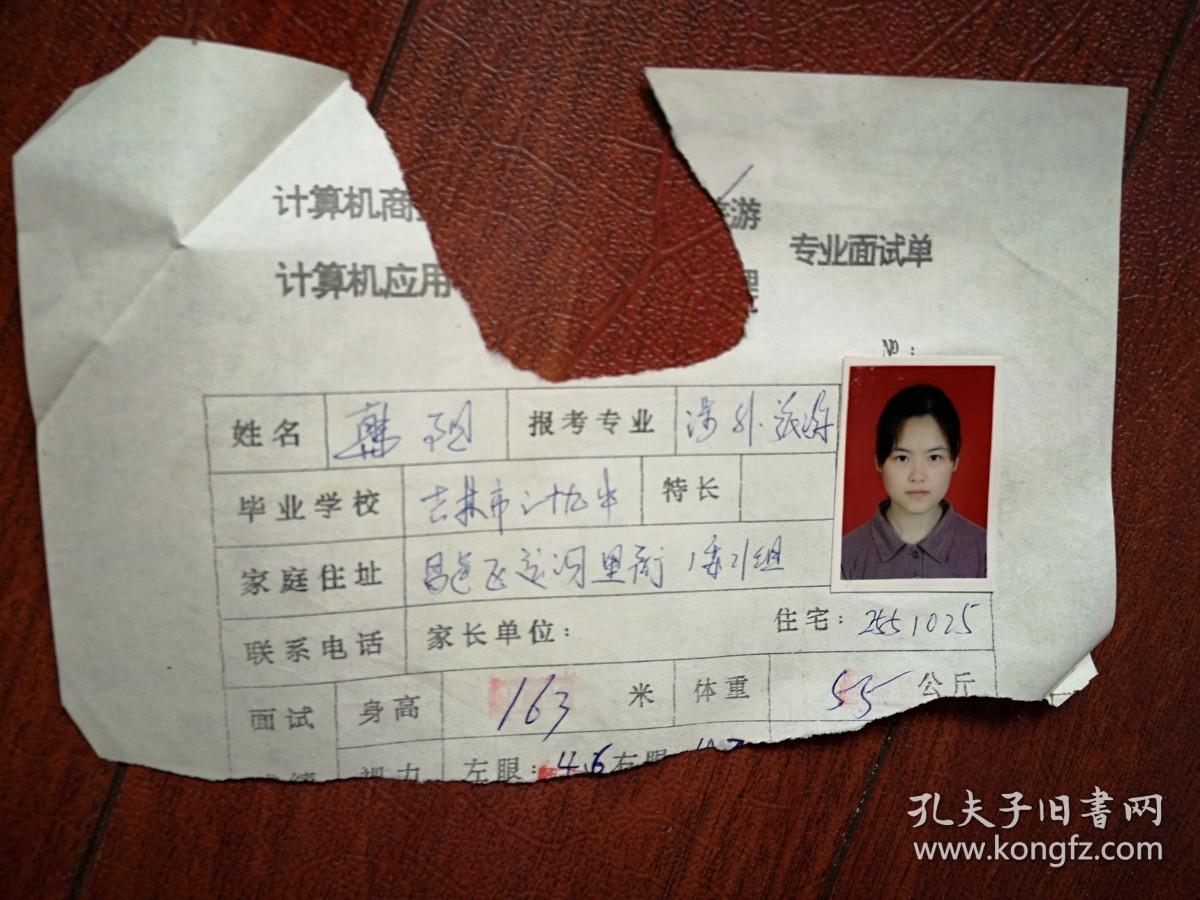 计算机商 游
计算机应用 理
专业面试单
№:
姓名 韩 报考专业 涉外旅游
毕业学校 吉林市二十九中 特长
家庭住址 昌邑区运河里街1委21组
联系电话 家长单位： 住宅：2551025
面试 身高 163 米 体重 55 公斤
视力 左眼：4.6 右眼
孔夫子旧书网
www.kongfz.com